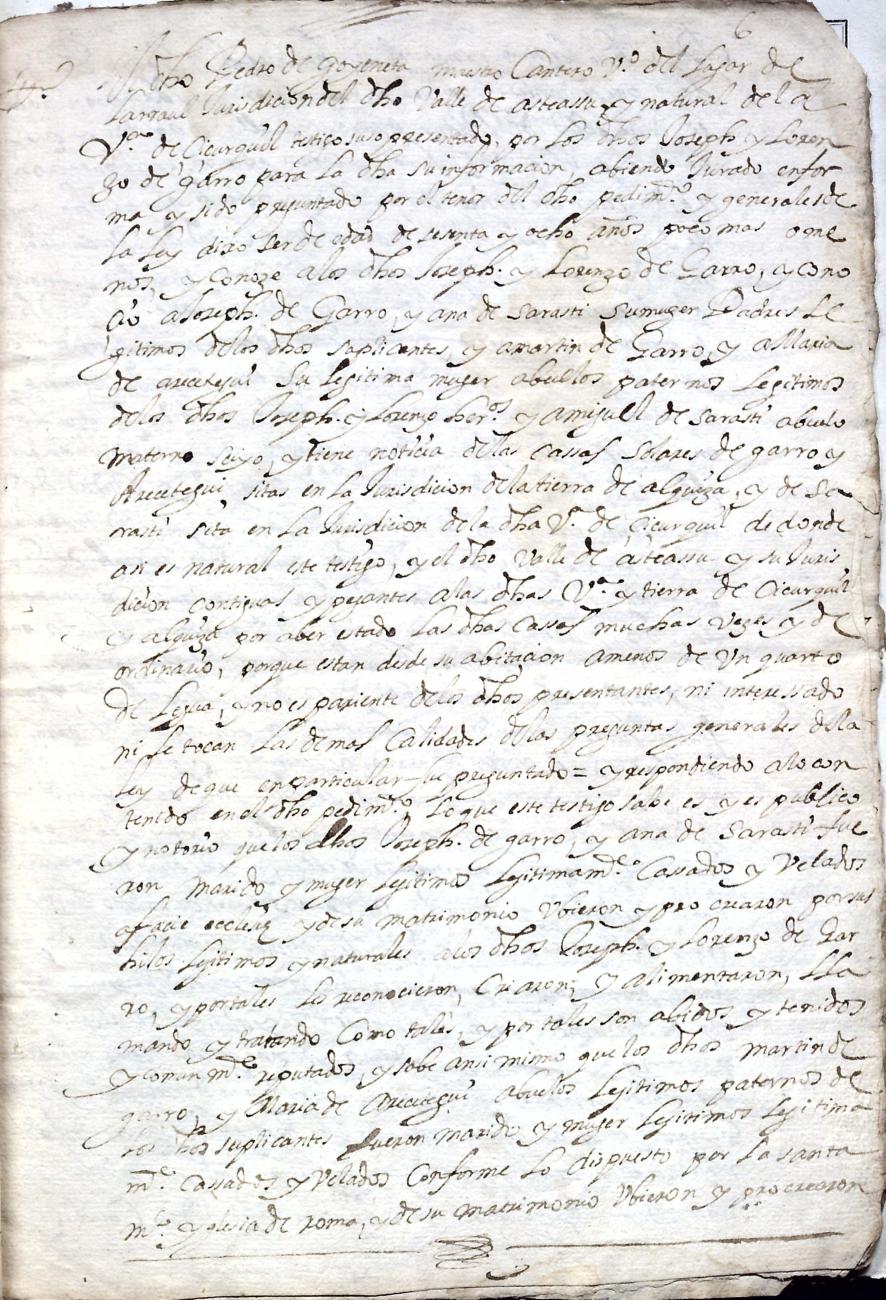 6
tº
El dho Pedro de Goyeneta maestro Cantero Vº del lugar de
Larraul Jurisdicion del dho Valle de asteassu, y natural de la
Vª de Cicurquil testigo suso presentado, por Los dhos Joseph y Loren
zo de garro para La dha su informacion, abiendo Jurado enfor
ma y sido preguntado por el tenor del dho pedimtº y generales de
La Ley dixo ser de edad de sesenta y ocho años poco mas ome
nos, y conoze alos dhos Joseph. y Lorenzo de Garro, y cono
cio aJoseph. de Garro, y ana de Sarasti Sumuger Padres Le
gitimos delos dhos suplicantes, y amartin de Garro, y aMaria
de arecetegui Su Legitima muger abuelos paternos Legitimos
delos dhos Joseph. y Lorenzo herºs y amiguell de Sarasti abuelo
materno Suyo, y tiene noticia delas cassas Solares de garro y
Arecetegui sitas en La Jurisdicion dela tierra de alquiza, y de Sa
rasti sita en La Jurisdicion dela dha Vª de Cicurquil de donde
asi es natural este testigo, y el dho Valle de asteassu y su Juris
dicion contiguas y pegantes alas dhas Vª y tierra de Cicurquil
y alquiza por aber estado Las dhas Cassas muchas vezes y de
ordinario, porque estan desde su abitacion amenos de Un quarto
de Legua, y no es pariente delos dhos presentantes, ni interessado
ni Le tocan Las demas Calidades delas preguntas generales dela
Ley de que en particular fue preguntado = y respondiendo alo con
tenido en el dho pedimtº Lo que este testigo sabe es y es publico
y notorio que los dhos Joseph. de garro, y ana de Sarasti fue
ron marido y muger Lejitimos Lejitimamte Cassados y Velados
afacie eclesię y de su matrimonio Ubieron y procrearon por sus
hijos Lejitimos y naturales alos dhos Joseph. y Lorenzo de Gar
ro, y por tales Los reconocieron, Criaron, y alimentaron, Lla
mando y tratando Como tales, y por tales son abidos y tenidos
y comunmte reputados, y sabe ansimismo que los dhos martin de
garro, y Maria de Arecetegui abuelos Lejitimos paternos de
los dhos suplicantes fueron marido y muger Lejitimos Lejitima
mte Cassados y Velados Conforme Lo dispuesto por La santa
me yglesia de roma, y de su matrimonio Ubieron y procrearon